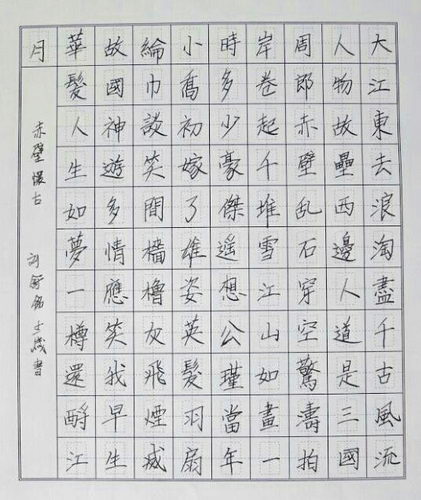 大江東去浪淘盡千古風流
人物故壘西邊人道是三國
周郎赤壁乱石穿空驚濤拍
岸卷起千堆雪江山如畫一
時多少豪傑遥想公瑾當年
小喬初嫁了雄姿英髮羽扇
綸巾談笑間檣櫓灰飛煙滅
故國神遊多情應笑我早生
華髮人生如夢一樽還酹江
月
赤壁懷古 書